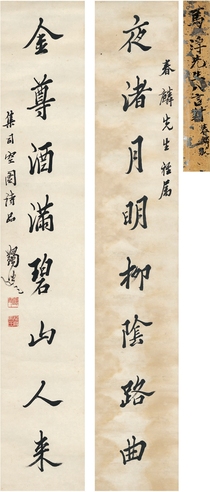 夜渚月明柳陰路曲
春麟先生恆屬
金尊酒滿碧山人来
集司空圖詩品
蠲叟
馬浮先生言對